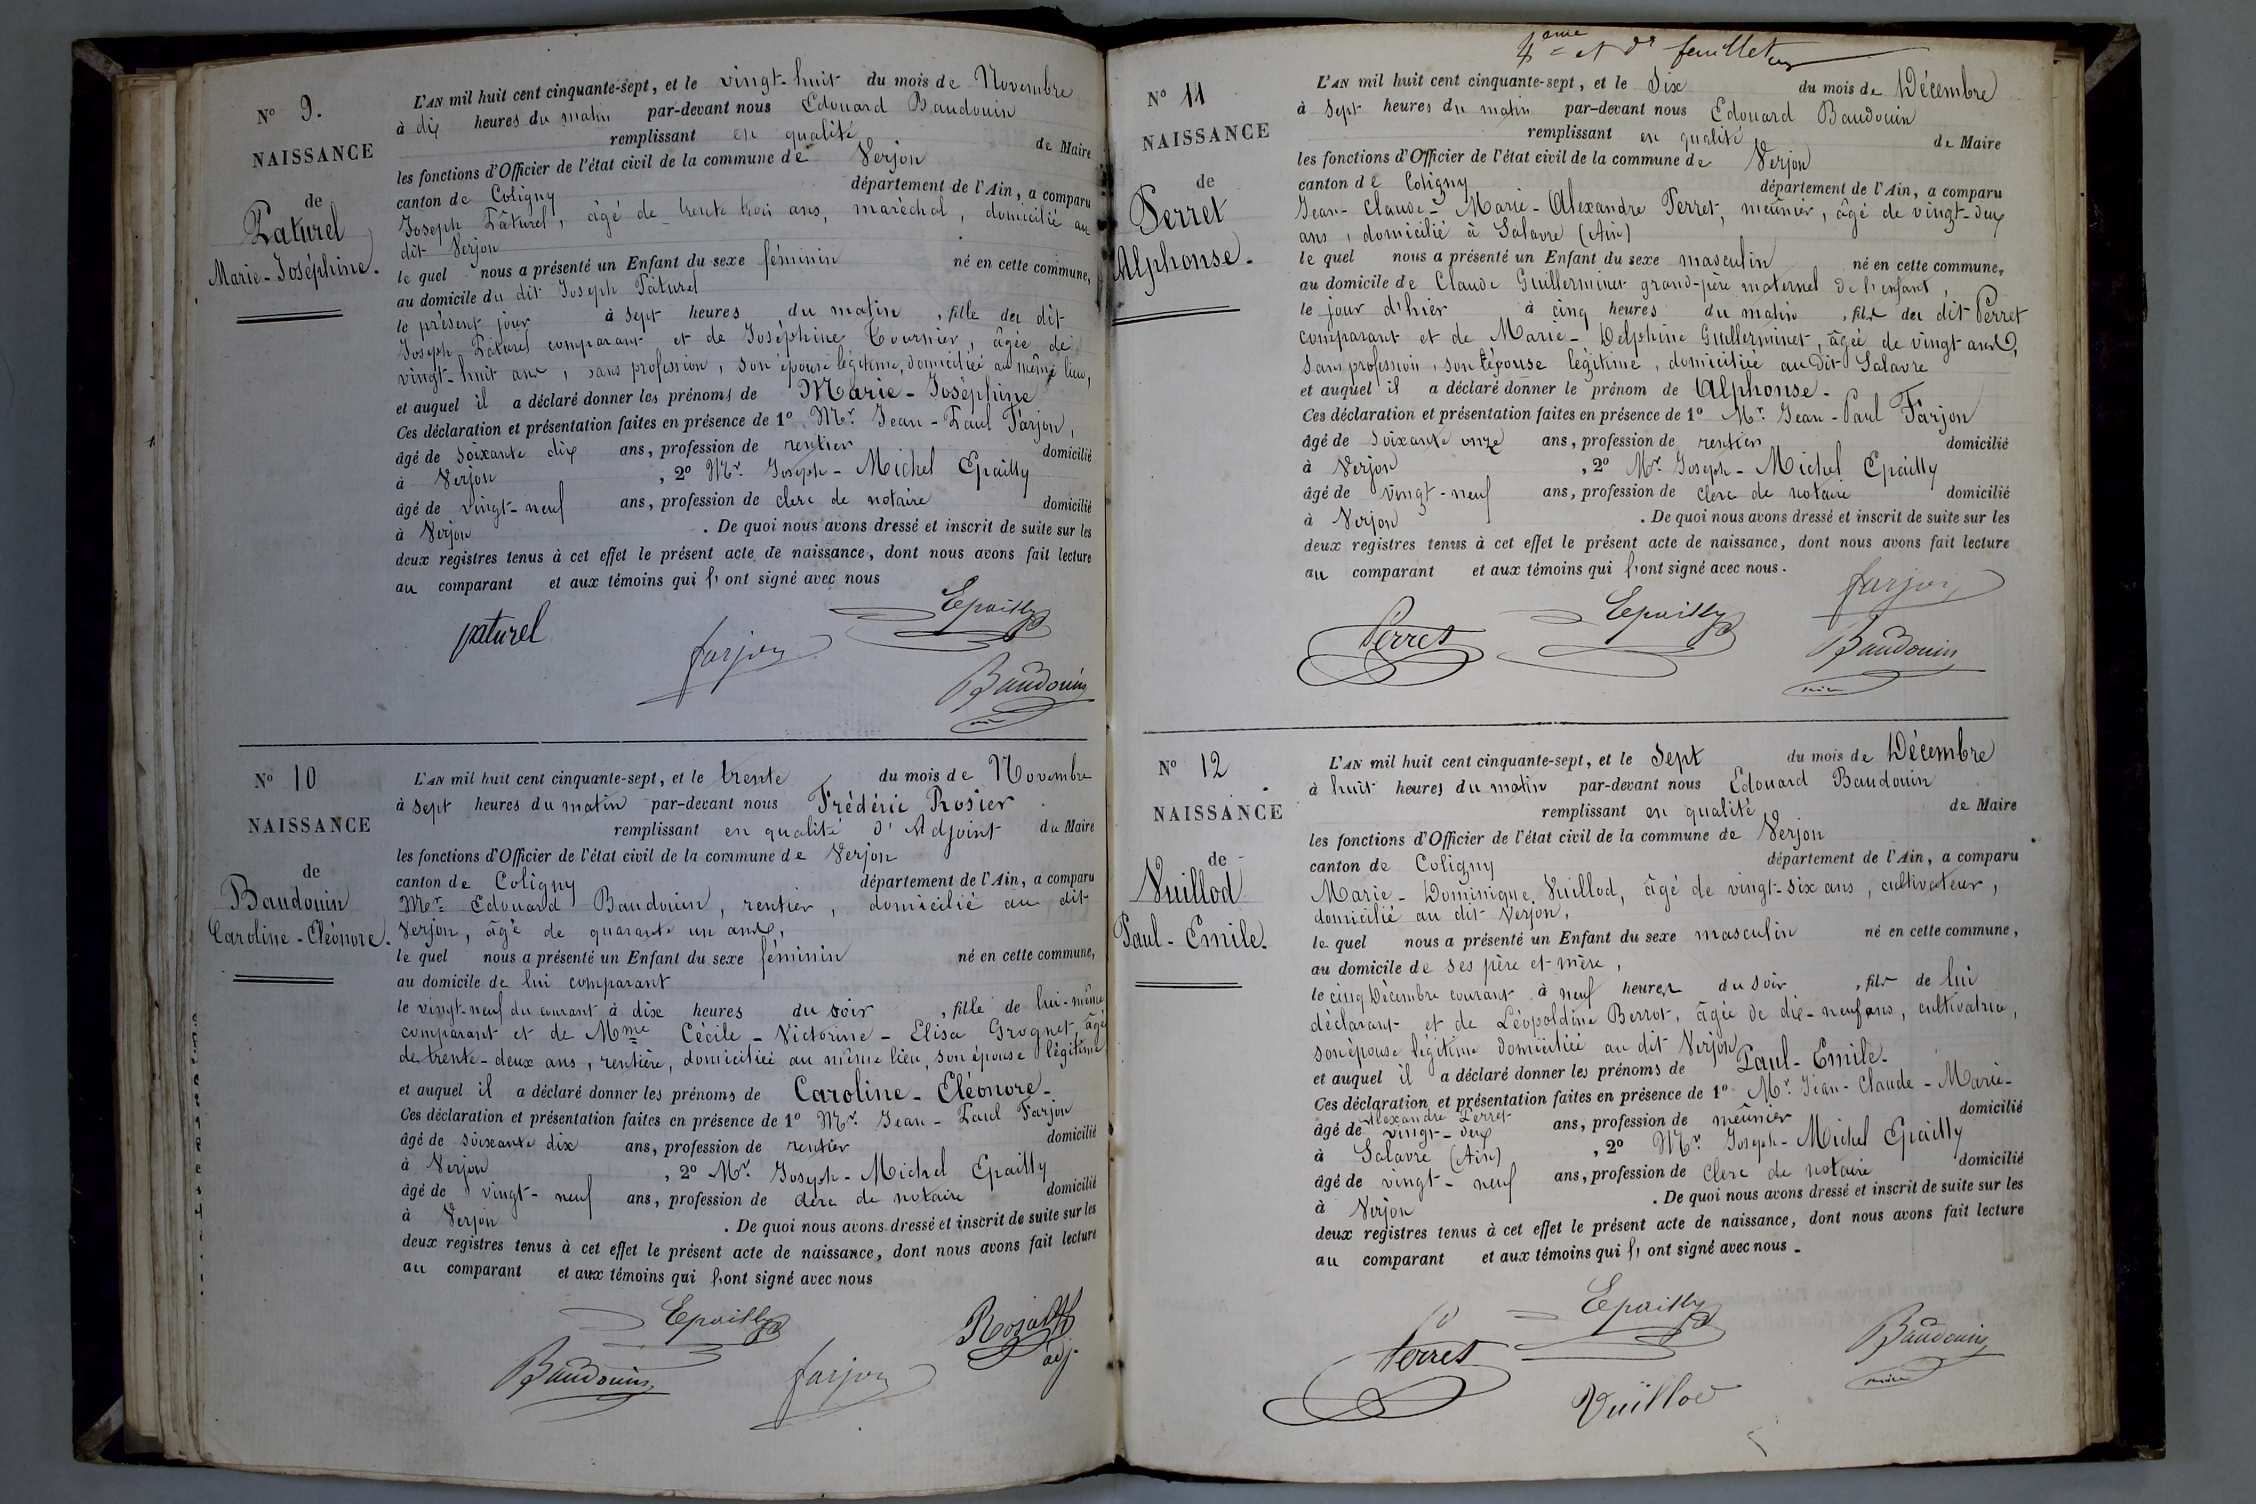 N° 9.
NAISSANCE
de
Paturel
Marie-Joséphine.
L'AN mil huit cent cinquante-sept, et le vingt-huit du mois de Novembre
à dix heures du matin par-devant nous Edouard Baudouin
remplissant en qualité de Maire
les fonctions d'Officier de l'état civil de la commune de Verjon
canton de Coligny département de l'Ain, a comparu
Joseph Pâturel, âgé de trente trois ans, maréchal, domicilié au
dit Verjon
le quel nous a présenté un Enfant du sexe féminin né en cette commune,
au domicile du dit Joseph Pâturel
le présent jour à sept heures du matin, fille du dit
Joseph Pâturel comparant et de Joséphine Tournier, âgée de
vingt-huit ans, sans profession, son épouse légitime, domiciliée au même lieu,
et auquel il a déclaré donner les prénoms de Marie-Joséphine
Ces déclaration et présentation faites en présence de 1° Mr. Jean-Paul Farjon,
âgé de soixante dix ans, profession de rentier domicilié
à Verjon, 2° Mr. Joseph-Michel Epailly
âgé de vingt-neuf ans, profession de clerc de notaire domicilié
à Verjon. De quoi nous avons dressé et inscrit de suite sur les
deux registres tenus à cet effet le présent acte de naissance, dont nous avons fait lecture
au comparant et aux témoins qui l'ont signé avec nous
Epailly
paturel
farjon
Baudouin
N° 10
NAISSANCE
de
Baudouin
Caroline-Eléonore.
L'AN mil huit cent cinquante-sept, et le trente du mois de Novembre
à sept heures du matin par-devant nous Frédéric Rosier
remplissant en qualité d'Adjoint du Maire
les fonctions d'Officier de l'état civil de la commune de Verjon
canton de Coligny département de l'Ain, a comparu
Mr. Edouard Baudouin, rentier, domicilié au dit
Verjon, âgé de quarante un ans,
le quel nous a présenté un Enfant du sexe féminin né en cette commune,
au domicile de lui comparant
le vingt-neuf du courant à dix heures du soir, fille de lui-même
comparant et de Mme Cécile-Victorine-Elisa Grognet, âgée
de trente-deux ans, rentière, domiciliée au même lieu, son épouse légitime
et auquel il a déclaré donner les prénoms de Caroline-Eléonore-
Ces déclaration et présentation faites en présence de 1° Mr. Jean-Paul Farjon
âgé de soixante dix ans, profession de rentier domicilié
à Verjon, 2° Mr. Joseph-Michel Epailly
âgé de vingt-neuf ans, profession de clerc de notaire domicilié
à Verjon. De quoi nous avons dressé et inscrit de suite sur les
deux registres tenus à cet effet le présent acte de naissance, dont nous avons fait lecture
au comparant et aux témoins qui l'ont signé avec nous
Epailly
adj.
Baudouin
farjon
4ème et dr feuillet
N° 11
NAISSANCE
de
Perret
Alphonse.
L'AN mil huit cent cinquante-sept, et le Dix du mois de Décembre
à sept heures du matin par-devant nous Edouard Baudouin
remplissant en qualité de Maire
les fonctions d'Officier de l'état civil de la commune de Verjon
canton de Coligny département de l'Ain, a comparu
Jean-Claude-Marie-Alexandre Perret, meûnier, âgé de vingt-deux
ans, domicilié à Salavre (Ain)
le quel nous a présenté un Enfant du sexe masculin né en cette commune,
au domicile de Claude Guillerminet grand-père maternel de l'enfant,
le jour d'hier à cinq heures du matin, fils du dit Perret
comparant et de Marie-Delphine Guillerminet, âgée de vingt ans,
sans profession, son épouse légitime, domiciliée au dit Salavre
et auquel il a déclaré donner le prénom de Alphonse.
Ces déclaration et présentation faites en présence de 1° Mr. Jean-Paul Farjon
âgé de soixante onze ans, profession de rentier domicilié
à Verjon, 2° Mr. Joseph-Michel Epailly
âgé de vingt-neuf ans, profession de clerc de notaire domicilié
à Verjon. De quoi nous avons dressé et inscrit de suite sur les
deux registres tenus à cet effet le présent acte de naissance, dont nous avons fait lecture
au comparant et aux témoins qui l'ont signé avec nous.
farjon
Epailly
Perret
Baudouin
N° 12
NAISSANCE
de
Vuillod
Paul-Emile.
L'AN mil huit cent cinquante-sept, et le Sept du mois de Décembre
à huit heures du matin par-devant nous Edouard Baudouin
remplissant en qualité de Maire
les fonctions d'Officier de l'état civil de la commune de Verjon
canton de Coligny département de l'Ain, a comparu
Marie-Dominique Vuillod, âgé de vingt-six ans, cultivateur,
domicilié au dit Verjon,
le quel nous a présenté un Enfant du sexe masculin né en cette commune,
au domicile de ses père et mère,
le cinq Décembre courant à neuf heures du soir, fils de lui
déclarant et de Léopoldine Berrot, âgée de dix-neuf ans, cultivatrice,
son épouse légitime domiciliée au dit Verjon
et auquel il a déclaré donner les prénoms de Paul-Emile.
Ces déclaration et présentation faites en présence de 1° Mr. Jean-Claude-Marie-
Alexandre Perret
âgé de vingt-deux ans, profession de meûnier domicilié
à Salavre (Ain), 2° Mr. Joseph-Michel Epailly
âgé de vingt-neuf ans, profession de clerc de notaire domicilié
à Verjon. De quoi nous avons dressé et inscrit de suite sur les
deux registres tenus à cet effet le présent acte de naissance, dont nous avons fait lecture
au comparant et aux témoins qui l'ont signé avec nous.
Epailly
Perret
Baudouin
maire
Vuillod